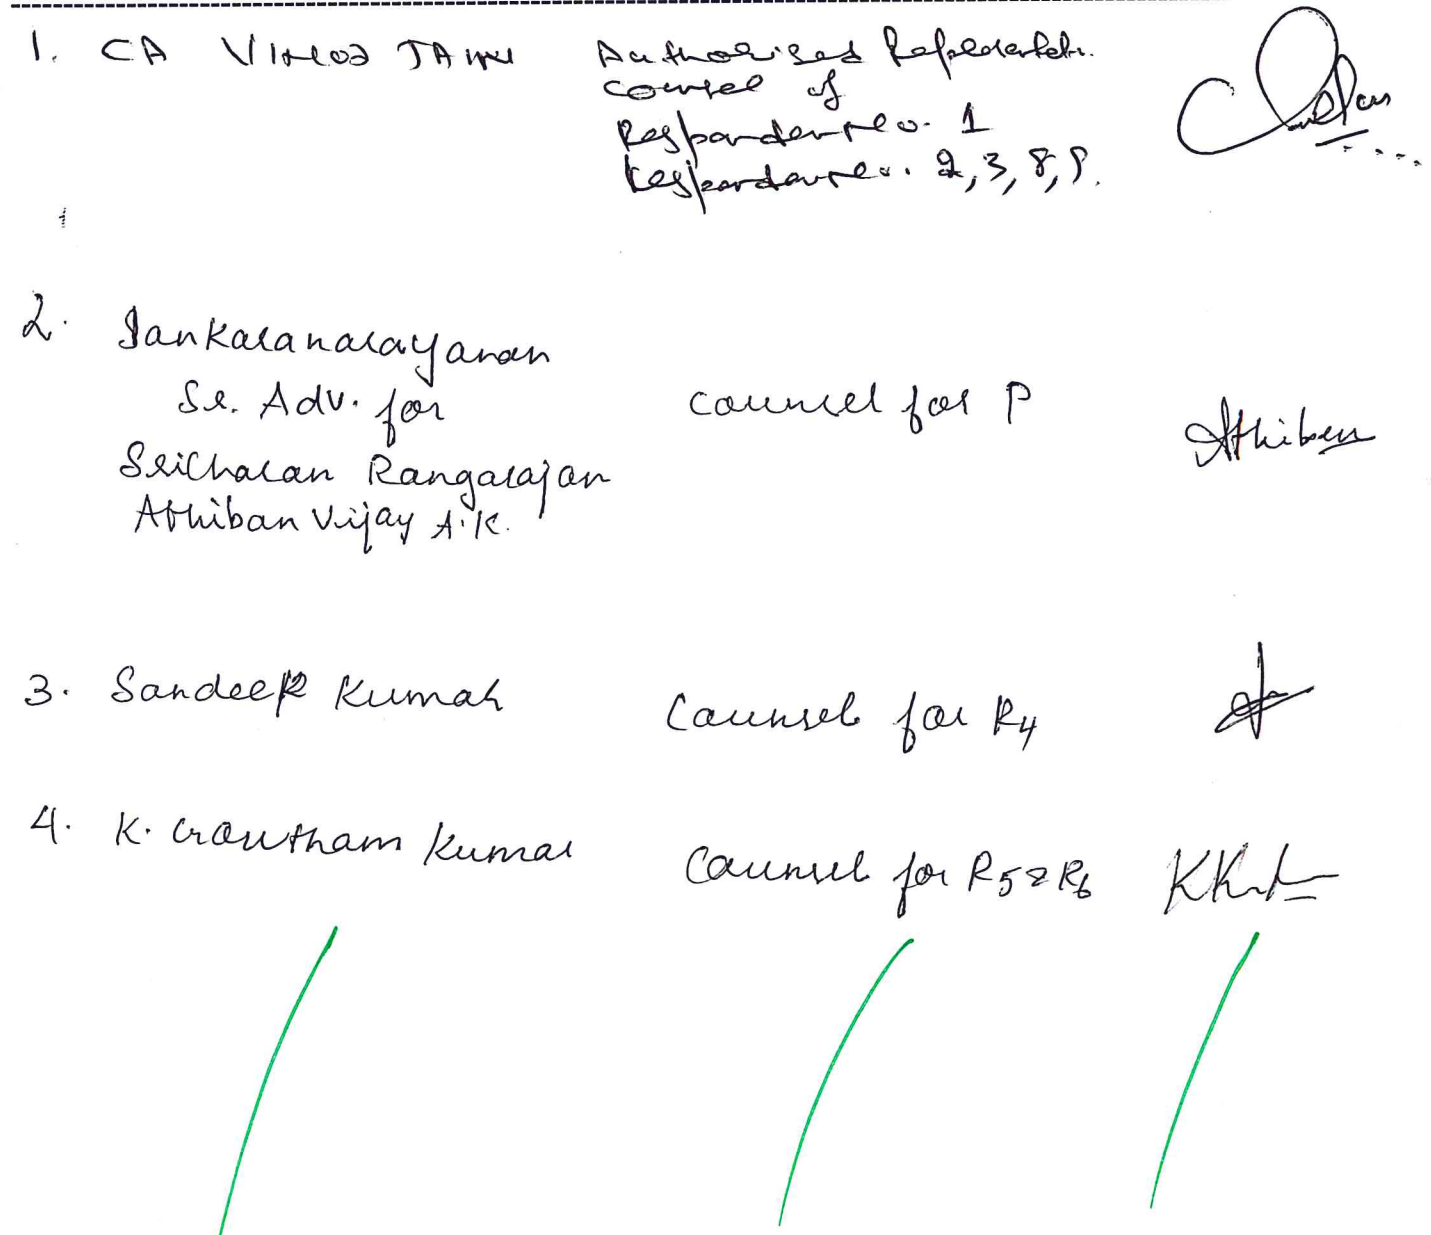 1. CA Vinod Jain Authorised Representativ.
counsel of
Respondent No. 1
Respondent No. 2,3,8,9.
2. Sankaranarayanan
Sr. Adv. for counsel for P Athiban
Sricharan Rangarajan
Athiban Vijay A.K.
3. Sandeep Kumar Counsel for R4
4. K. Gowtham Kumar Counsel for R5 & R6